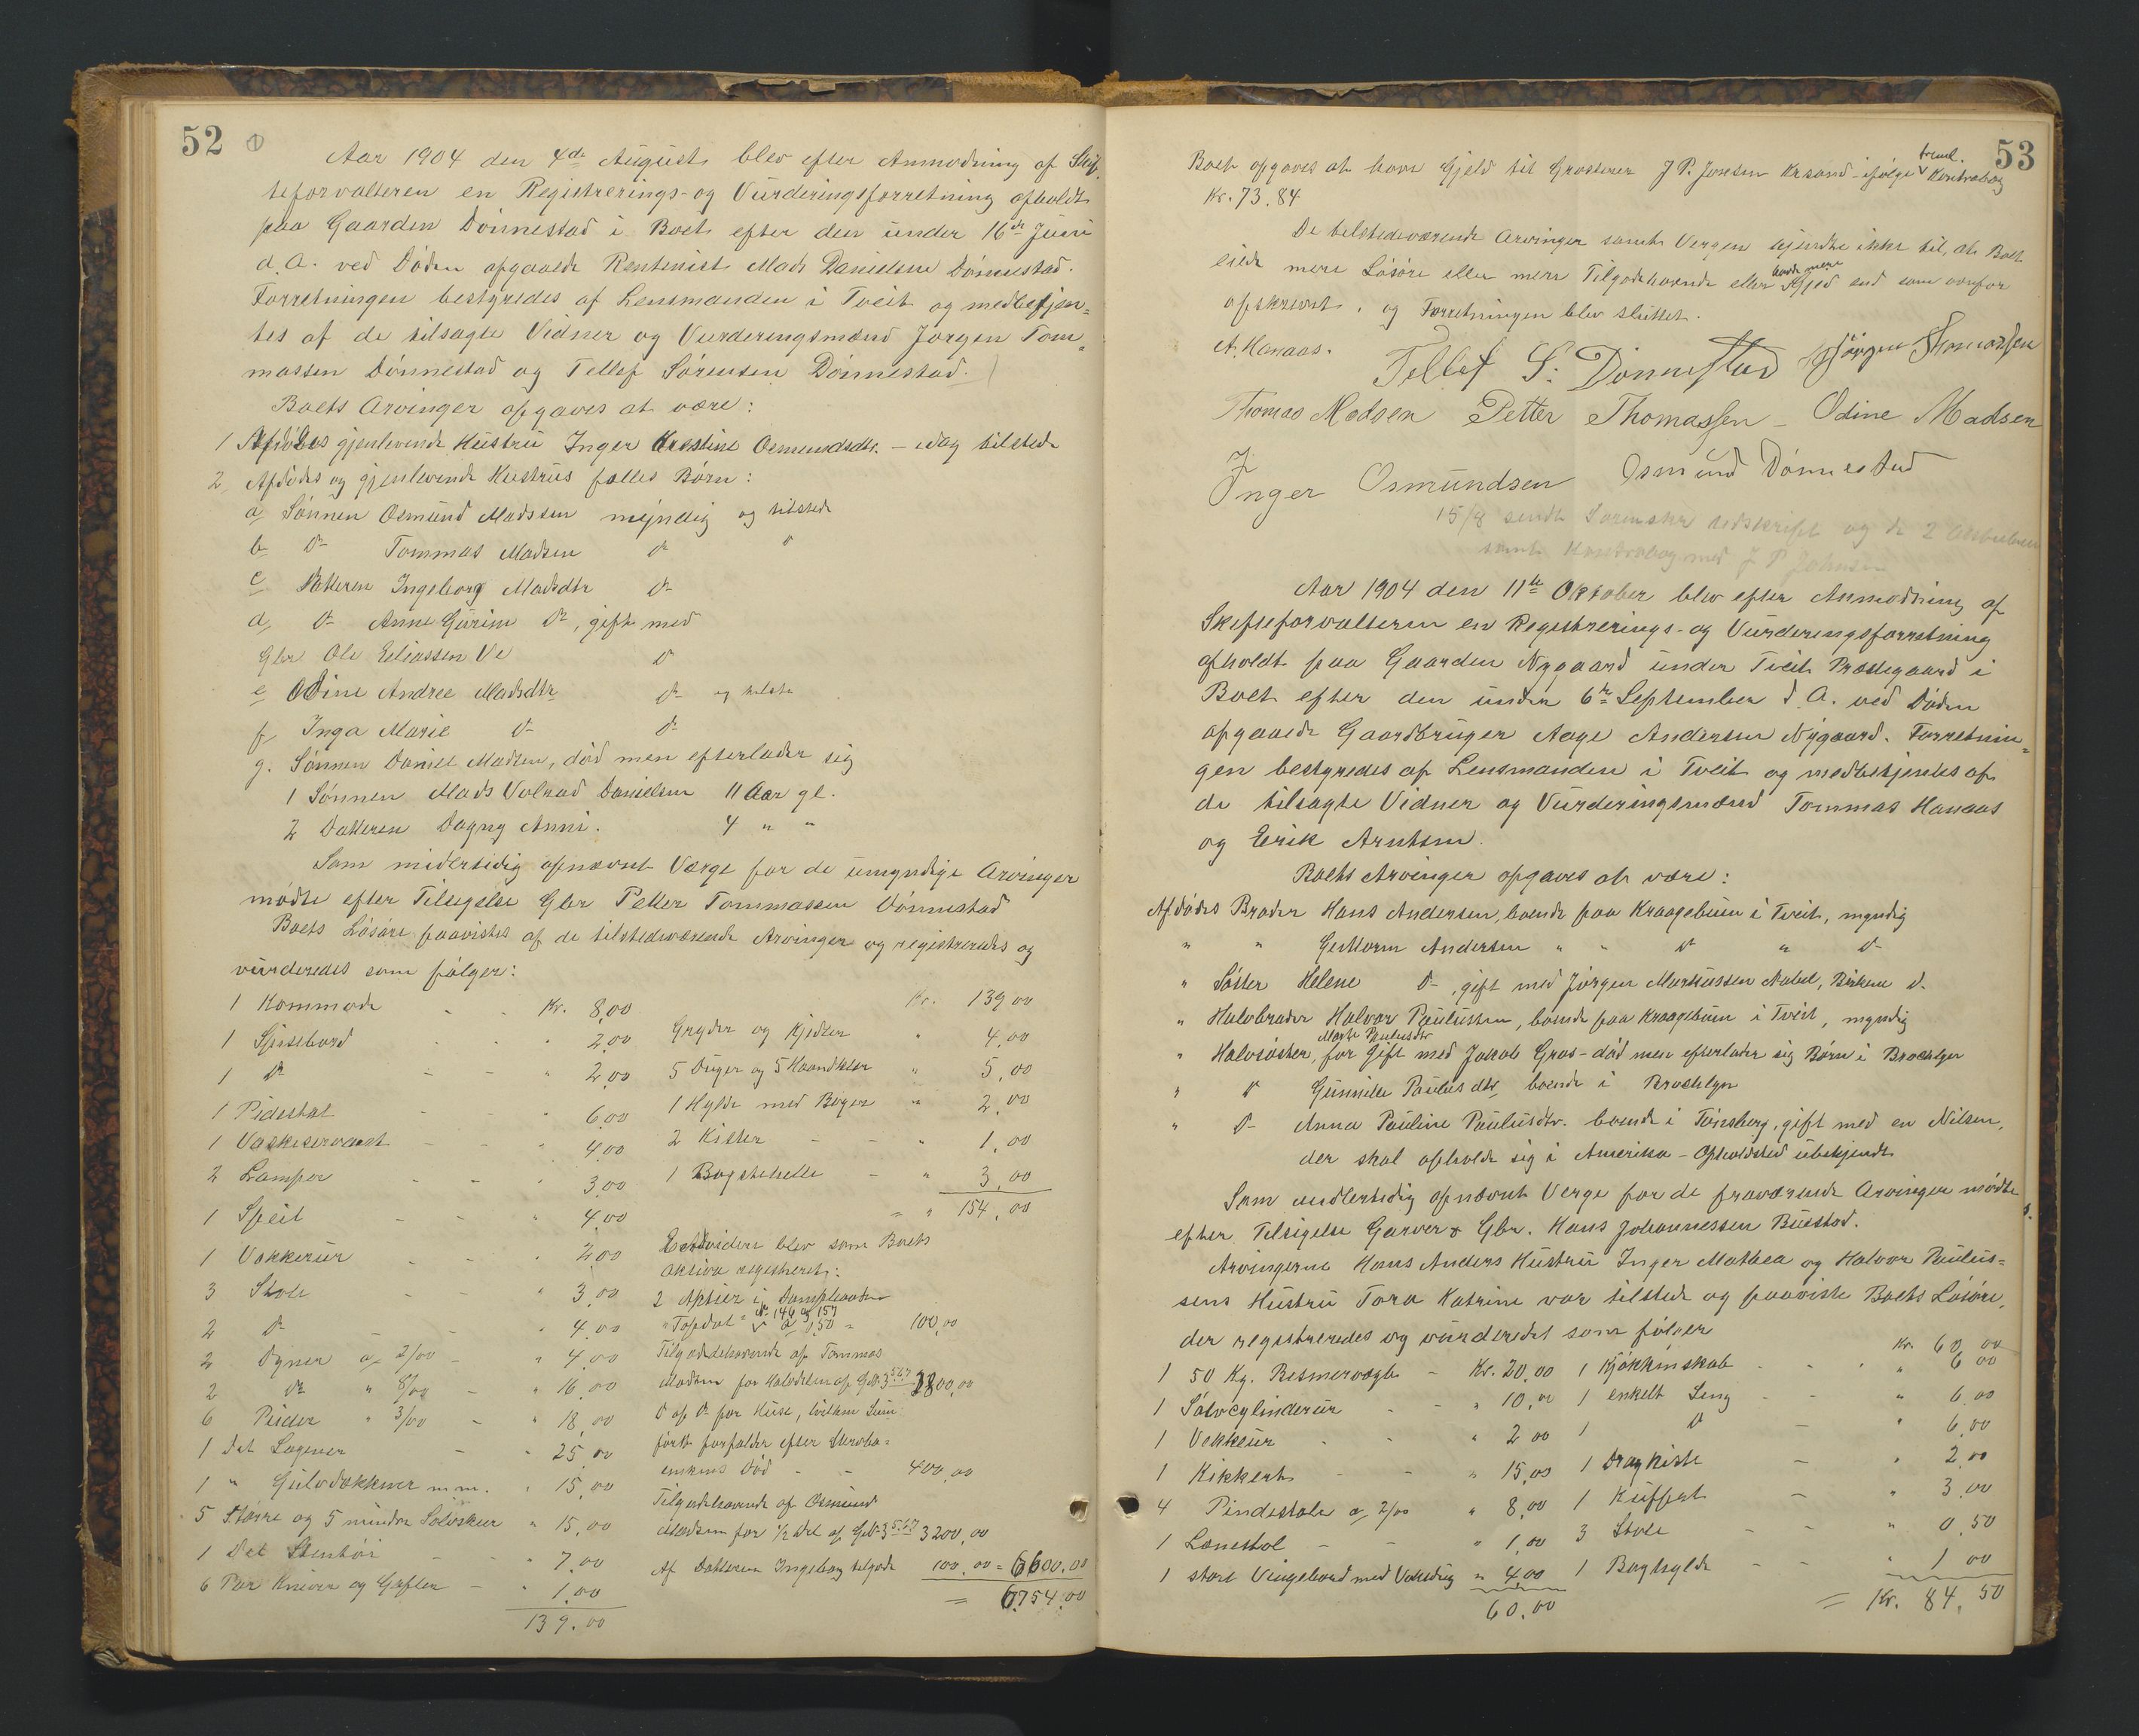 52
Aar 1904 den 4de August blev efter Anmodning af Skif-
teforvalteren en Registrerings- og Vurderingsforretning afholdt
paa Gaarden Dønnestad i Boet efter den under 16de Juni
d. A. ved Døden afgaaede Rentenist Mads Danielsen Dønnestad.
Forretningen bestyredes af Lensmanden i Tveit og medbetjen=
tes af de tilsagte Vidner og Vurderingsmænd Jørgen Tom=
massen Dønnestad og Tellef Sørensen Dønnestad.
Boets Arvinger opgaves at være:
1 Afdødes gjenlevende Hustru Inger Kirstine Osmundsdtr. – idag tilstede
2, Afdødes og gjenlevende Hustrus fælles Børn:
a, Sønnen Osmund Madssen myndig og tilstede
b do Tommas Madsen do do
c Datteren Ingeborg Madsdtr do
d, do Anne Gurine do, gift med
Gbr Ole Eliassen Ve do
e Odine Andree Madsdtr do og tilste
f, Inga Marie do do
g. Sønnen Daniel Madsen, død men efterlader sig
1 Sønnen Mads Valrad Danielsen 11 Aar gl.
2 Datteren Dagny Anni. 4 " "
Som midlertidig opnævnt Værge for de umyndige Arvinger
mødte efter Tilsigelse Gbr Petter Tommassen Dønnestad
Boets Løsøre paavistes af de tilstedeværende Arvinger og registreredes og
vurderedes som følger:
1 Kommode - - Kr. 8,00
1 Spisebord - - " 2,00
1 do - - " 2,00
1 Pidestal - - " 6,00
1 Vaskeservant - - " 4,00
2 Lamper - - " 3,00
1 Speil - - " 4,00
1 Vækkerur - - " 2,00
3 Stole - - " 3,00
2 do - - " 4,00
2 Dyner a 2/00 - " 4,00
2 do " 8/00 - " 16,00
6 Puder " 3/00 - " 18,00
1 Del Lagener - " 25,00
1 " Gulvdækkener m.m. " 15,00
5 større og 5 mindre Sølvskeer " 15,00
1 Del Stentøi - " 7.00
6 Par Kniver og Gafler - " 1.00
139.00
Kr. 139,00
Gryder og Kjedler " 4,00
5 Duger og 5 Haandklær " 5,00
1 Hylde med Bøger " 2,00
2 Kister - - " 1,00
1 Bogstehelle - " 3,00
= " 154,00
Endvidere blev som Boets
Aktiva registreret:
2 Aktier i Dampbaaten
"Topdal" No 146 og 157 a 50 - 100,00
Tilgodehavende af Tommas
Madsen for Halvdelen af Gdb. 3 2800,00
do af do for Huse, hvilken Sum
først forfalder efter Skrøbe=
enkens Død - - 400,00
Tilgodehavende af Osmund
Madsen for 1/2 Del af Gdb. 3 3200,00
Af Datteren Ingeborg tilgode 100,00 = 6600.00
= 6754.00
53
Boet opgaves at have Gjeld til Grosserer J P. Jensen Krsand - ifølge freml. Kontrabog
Kr. 73.84
De tilstedeværende Arvinger samt Vergen kjendte ikke til, at Boet
eiede mere Løsøre eller mere Tilgodehavende eller havde mere Gjeld end som ovenfor
opskrevet, og Forretningen blev sluttet.
A. Hanaas.
Tellef S: Dønnestad Jørgen Thomassen
Thomas Madsen Petter Thomassen – Odine Madsen
Inger Osmundsen Osmund Dønnestad
15/8 sendt Sorenskr udskrift og de 2
samt Kontrabog med J P
Aar 1904 den 11te Oktober blev efter Anmodning af
Skifteforvalteren en Registrerings- og Vurderingsforretning
afholdt paa Gaarden Nygaard under Tveit Præstegaard i
Boet efter den under 6te September d. A. ved Døden
afgaaede Gaardbruger Aage Andersen Nygaard. Forretnin=
gen bestyredes af Lensmanden i Tveit og medbetjentes af
de tilsagte Vidner og Vurderingsmænd Tommas Hanaas
og Erik Arntsen.
Boets Arvinger opgaves at være:
Afdødes Broder Hans Andersen, boende paa Kraagebuen i Tveit, myndig
" " Guttorm Andersen " " do " do
" Søster Helene do, gift med Jørgen Markussen Nabel, Birkene do
" Halvbroder Halvor Paulussen, boende paa Kraagebuen i Tveit, myndig
" Halvsøster, Marte Paulusdtr før gift med Jakob Gras – død men efterlader sig Børn i Brocklyn
" do Gunnille Paulusdtr, boende i Brocklyn
" do Anna Pauline Paulusdtr. boende i Tønsberg, gift med en Nilsen,
der skal opholde sig i Amerika – Opholdsted ubekjendt
Som midlertidig opnævnt Verge for de fraværende Arvinger mødte
efter Tilsigelse Garver & Gbr. Hans Johannessen Bustad.
Arvingerne Hans Anders Hustru Inger Mathea og Halvor Paulus=
sens Hustru Tora Katrine var tilstede og paaviste Boets Løsøre,
der registreredes og vurderedes som følger
1 50 Kg. Bismervægt - Kr. 20,00
1 Sølvcylinderur - - " 10,00
1 Vækkeur - - " 2 00
1 Kikkert - - " 15,00
4 Pindestole a 2/00 " 8,00
1 Lænestol - - " 1,00
1 stort Vingebord med Voksdug " 4,00
60.00
Kr. 60,00
1 Kjøkkinskab - - " 6 00
1 enkelt Seng - - " 6,00
1 do - " 6,00
1 Dragkiste - " 2,00
1 Kuffert - " 3,00
3 Stole - - " 0,50
1 Boghylde - - " 1 00
= Kr. 84,50